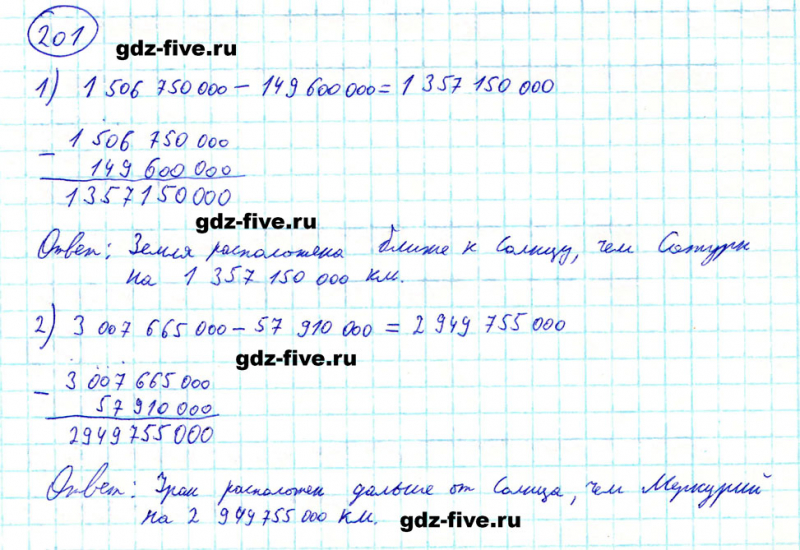 201
gdz-five.ru
1) 1 506 750 000 - 149 600 000 = 1 357 150 000
- 1 506 750 000
149 600 000
1357150000
gdz-five.ru
Ответ: Земля расположена ближе к Солнцу, чем Сатурн
на 1 357 150 000 км.
2) 3 007 665 000 - 57 910 000 = 2 949 755 000
gdz-five.ru
- 3 007 665 000
57 910 000
2949755000
Ответ: Уран расположен дальше от Солнца, чем Меркурий
на 2 949 755 000 км.
gdz-five.ru